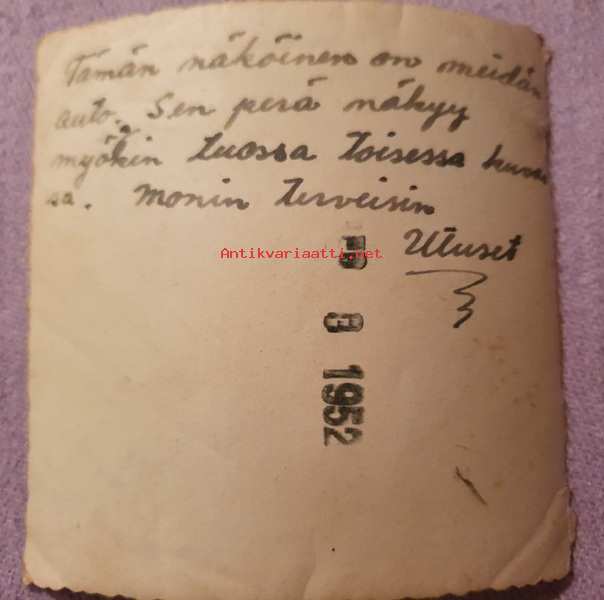 Tämän näköinen on meidän
auto. Sen perä näkyy
myökin tuossa toisessa kuvas
sa. Monin terveisin
Utuset
Antikvariaatti.net
8 1952